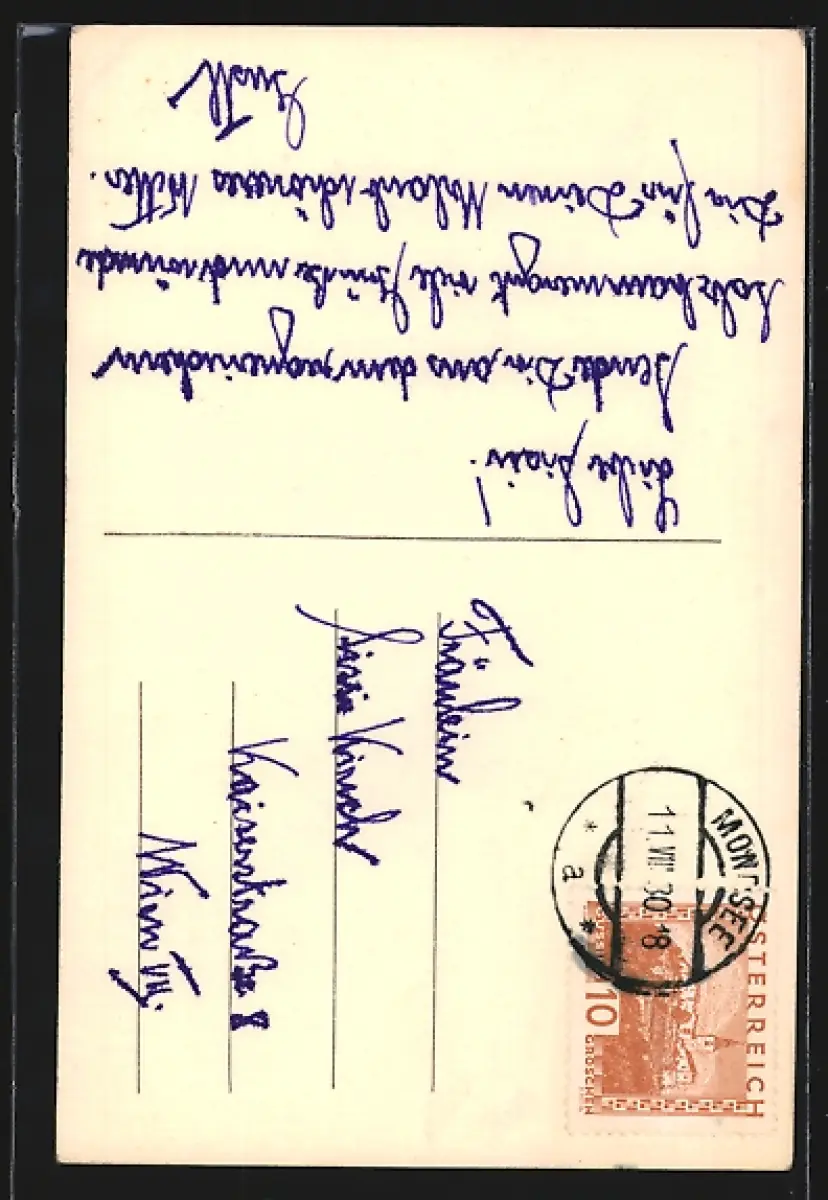 Liebe Lisi!
Sende Dir, aus dem regnerischen
Salzkammergut viele Grüße und wünsche
Dir für Deinen Urlaub schöneres Wetter.
Gustl
Fräulein
Lisi Kirsch
Kaiserstraße 8
Wien VII.
MONDSEE
11.VII.30.18
* a *
ÖSTERREICH
10
GROSCHEN